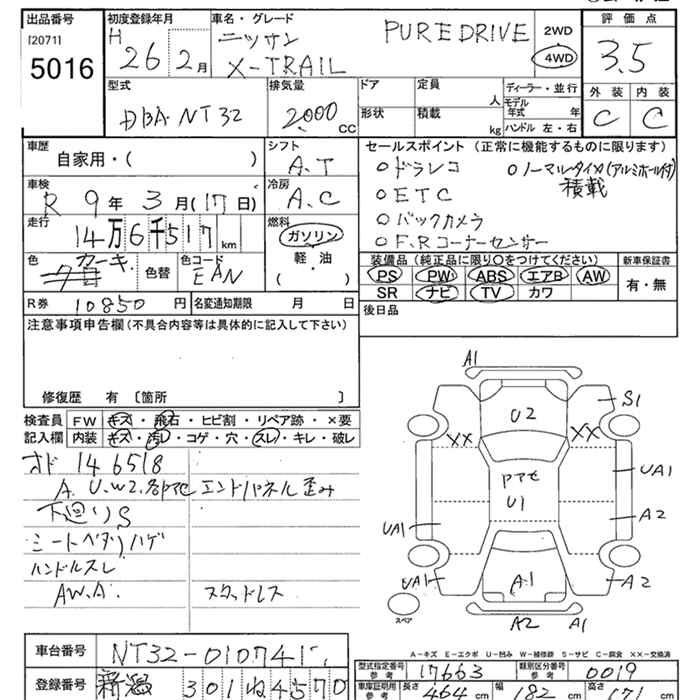 出品番号
[2071]
5016
初度登録年月
H 26 2月
車名・グレード
ニッサン
X-TRAIL
PUREDRIVE
2WD
4WD
評価点
3.5
外装 内装
C C
型式
DBA NT32
排気量
2000 CC
ドア 定員 人
形状 積載 kg
ディーラー・並行
モデル年式 年
ハンドル 左・右
車歴
自家用・( )
シフト
A.T
車検
R 9年 3月(17日)
冷房
A.C
走行
14万6千517km
燃料
ガソリン
軽・油
( )
色 カーキ 色替
色コード
EAN
R券 10850円 名変通知期限 月 日
セールスポイント (正常に機能するものに限ります)
○ドラレコ ○ノーマルタイヤ(アルミホイール付)
積載
○ETC
○バックカメラ
○F.Rコーナーセンサー
装備品(純正品に限り○をつけてください) 新車保証書
PS PW ABS エアB AW
SR ナビ TV カワ 有・無
後日品
注意事項申告欄(不具合内容等は具体的に記入して下さい)
修復歴 有 〔箇所 〕
検査員 FW キズ・飛石・ヒビ割・リペア跡・×要
記入欄 内装 キズ・汚レ・コゲ・穴・スレ・キレ・破レ
オド 146518
A.U.W2.各Pアセ エンドパネル歪み
下廻りS
シートヘタリハゲ
ハンドルスレ
AW.A. スタッドレス
A1
S1
U2
XX XX
Pアセ
U1
UA1
A2
UA1
UA1
A1
A2
A2 A1
スペア
A-キズ E-エクボ U-凹み W-補修跡 S-サビ C-腐食 XX-交換済
車台番号 NT32-010741
登録番号 新潟 301 ね4570
型式指定番号 参考 17663 類別区分番号 参考 0019
車庫証明用 参考 長さ 464 cm 幅 182 cm 高さ 171 cm